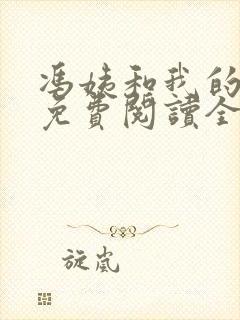 馮姨和我的
免費閱讀全
旋嵐